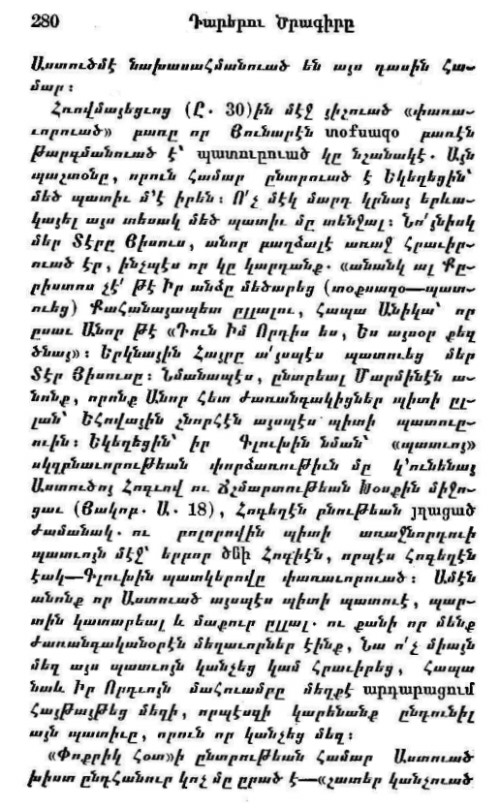 280 Դարերու Ծրագիրը
Աստուծմէ նախասահմանուած են այս դասին հա-
մար:
Հռովմայեցւոց (Ը. 30)ին մէջ յիշուած «փառա-
ւորուած» բառը որ Յունարէն տօքսազօ բառէն
թարգմանուած է՝ պատուըուած կը նշանակէ. Այն
պաշտօնը, որուն համար ընտրուած է Եկեղեցին՝
մեծ պատիւ մ՚է իրեն: Ո՛չ մէկ մարդ կրնայ երևա-
կայել այս տեսակ մեծ պատիւ մը տենչալ: Նո՛յնիսկ
մեր Տէրը Յիսուս, անոր բաղձալէ առաջ հրաւիր-
ուած էր, ինչպէս որ կը կարդանք. «անանկ ալ Քը-
րիստոս չէ՛ թէ Իր անձը մեծարեց (տօքսազօ—պատ-
ուեց) Քահանայապետ ըլլալու, հապա Անիկա՝ որ
ըսաւ Անոր թէ «Դուն Իմ Որդիս ես, Ես այսօր քեզ
ծնայ»: Երկնային Հայրը ա՛յսպէս պատուեց մեր
Տէր Յիսուսը: Նմանապէս, ընտրեալ Մարմինէն ա-
նոնք, որոնք Անոր հետ ժառանգակիցներ պիտի ըլ-
լան՝ Եհովային շնորհէն այսպէս պիտի պատուը-
ուին: Եկեղեցին՝ իր Գլուխին նման՝ «պատւոյ»
սկզբնաւորութեան փորձառութիւն մը կ՚ունենայ
Աստուծոյ Հոգւով ու Ճշմարտութեան Խօսքին միջո-
ցաւ (Յակոբ. Ա. 18), Հոգեղէն բնութեան յղացած
ժամանակ. ու բոլորովին պիտի առաջնորդուի
պատւոյն մէջ՝ երբոր ծնի Հոգիէն, որպէս հոգեղէն
էակ—Գլուխին պատկերովը փառաւորուած: Ամէն
անոնք որ Աստուած այսպէս պիտի պատուէ, պար-
տին կատարեալ և մաքուր ըլլալ. ու քանի որ մենք
ժառանգականօրէն մեղաւորներ էինք, Նա ո՛չ միայն
մեզ այս պատւոյն կանչեց կամ հրաւիրեց, հապա
նաև Իր Որդւոյն մահուամբը մեղքէ արդարացում
հայթայթեց մեզի, որպէսզի կարենանք ընդունիլ
այն պատիւը, որուն որ կանչեց մեզ:
«Փոքրիկ Հօտ»ի ընտրութեան համար Աստուած
խիստ ընդհանուր կոչ մը ըրած է—«շատեր կանչուած